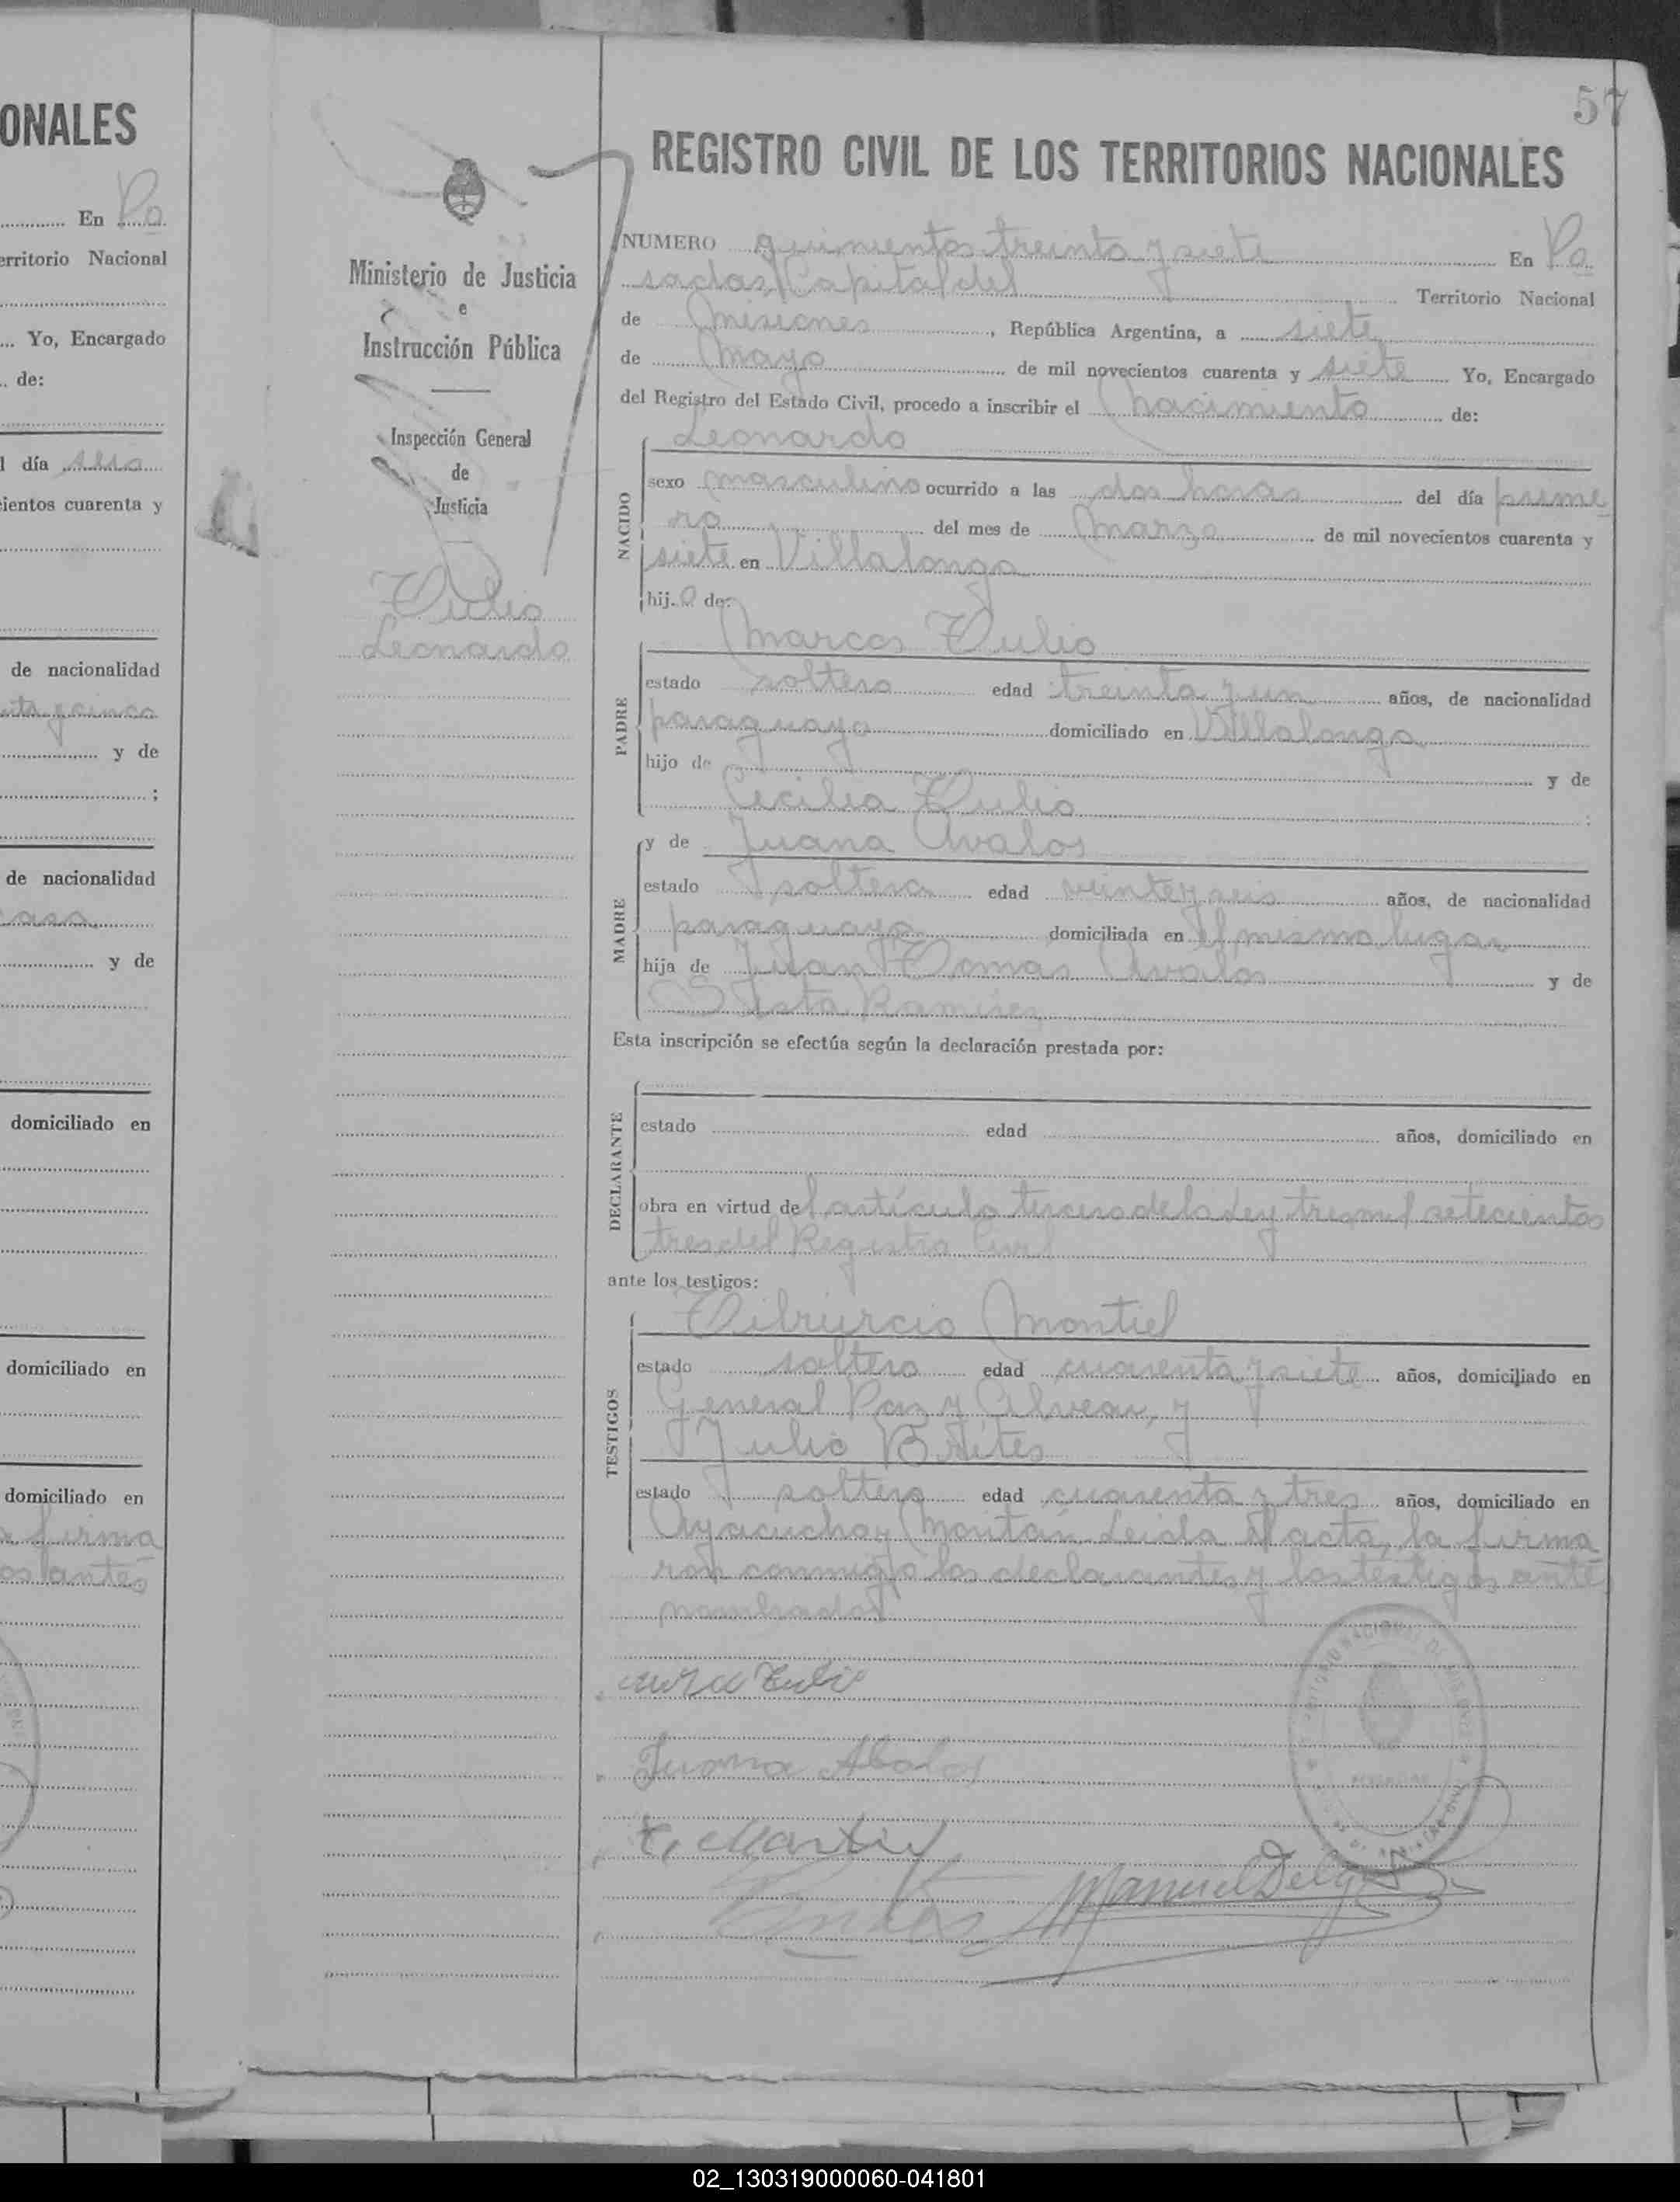 ONALES
En Po
erritorio Nacional
... Yo, Encargado
. de:
l día seis
ientos cuarenta y
de nacionalidad
y de
;
de nacionalidad
y de
domiciliado en
domiciliado en
domiciliado en
firma
os antes
57
REGISTRO CIVIL DE LOS TERRITORIOS NACIONALES
Ministerio de Justicia
e
Instrucción Pública
Inspección General
de
Justicia
Tulio
Leonardo
NUMERO quinientos treinta y siete En Po
sadas, Capital del Territorio Nacional
de Misiones, República Argentina, a siete
de Mayo de mil novecientos cuarenta y siete Yo, Encargado
del Registro del Estado Civil, procedo a inscribir el nacimiento de:
NACIDO
Leonardo
sexo masculino ocurrido a las dos horas del día prime
ro del mes de Marzo de mil novecientos cuarenta y
siete en Villalonga
hijo de:
PADRE
Marcos Tulio
estado soltero edad treinta y un años, de nacionalidad
paraguaya domiciliado en Villalonga
hijo de y de
Cecilia Tulio ;
MADRE
y de Juana Avalos
estado soltera edad veinte y seis años, de nacionalidad
paraguaya domiciliada en el mismo lugar
hija de Juan Tomas Avalos y de
Justa Ramirez
Esta inscripción se efectúa según la declaración prestada por:
DECLARANTE
estado edad años, domiciliado en
obra en virtud del artículo tercero de la Ley tres mil setecientos
tres del Registro Civil
ante los testigos:
TESTIGOS
Tiburcio Montiel
estado soltero edad cuarenta y siete años, domiciliado en
General Paz y Alvear, y
Julio Brites
estado soltero edad cuarenta y tres años, domiciliado en
Ayacucho y Moritán. Leida el acta, la firma
ron conmigo los declarantes y los testigos ante
nombrados
Tulio
Juana Abalos
t. Montiel
Brites Manuel Delg
02_130319000060-041801